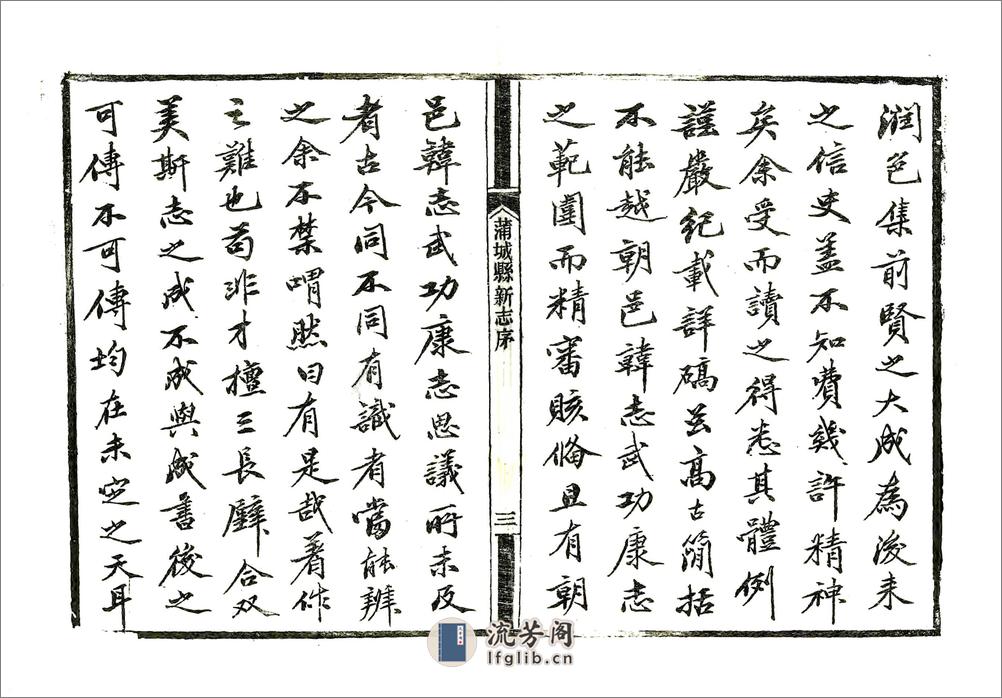 潤色集前賢之大成為後來
之信史盖不知費幾許精神
矣余受而讀之得悉其體例
謹嚴紀載詳確至高古簡括
不能越朝邑韓志武功康志
之範圍而精審賅備且有朝
蒲城縣新志序
三
邑韓志武功康志思議所未及
者古今同不同有識者當能辨
之余不禁喟然曰有是哉著作
之難也苟非才擅三長璧合双
美斯志之成不成與成書後之
可傳不可傳均在未定之天耳
流芳阁
lfglib.cn